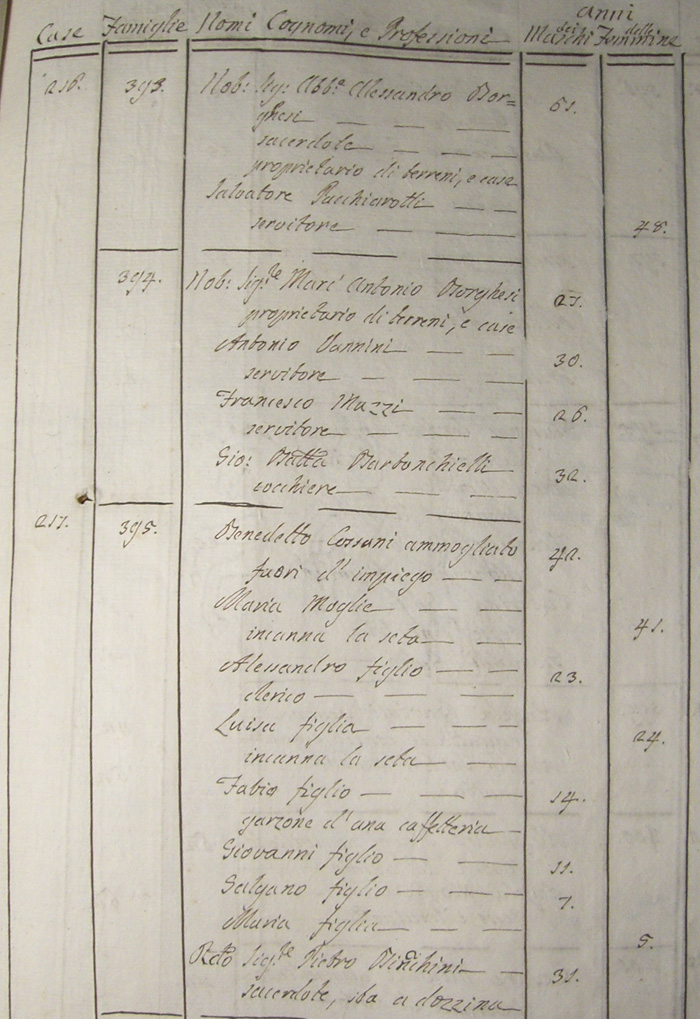 anni
Case Famiglie Nomi Cognomi, e Professioni dei Maschi delle Femmine
216. 393. Nob: Sig: Abb.e Alessandro Bor=
ghesi 61.
sacerdote
proprietario di terreni, e case
Salvatore Pacchiarotti
servitore 48.
394. Nob: Sig.re Marc' Antonio Borghesi 27.
proprietario di terreni, e case
Antonio Vannini 30.
servitore
Francesco Mazzi 26.
servitore
Gio: Batta Barbonchielli 32.
cocchiere
217. 395. Benedetto Cossani ammogliato 42.
fuori d'impiego
Maria Moglie 41.
incanna la seta
Alessandro figlio 23.
clerico
Luisa figlia 24.
incanna la seta
Fabio figlio 14.
garzone d'una caffetteria
Giovanni figlio 11.
Galgano figlio 7.
Maria figlia 5.
Rdo Sig.re Pietro Binchini 31.
sacerdote, sta a dozzina